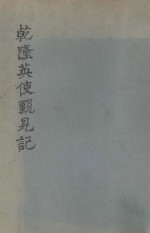 乾隆英使覲見記